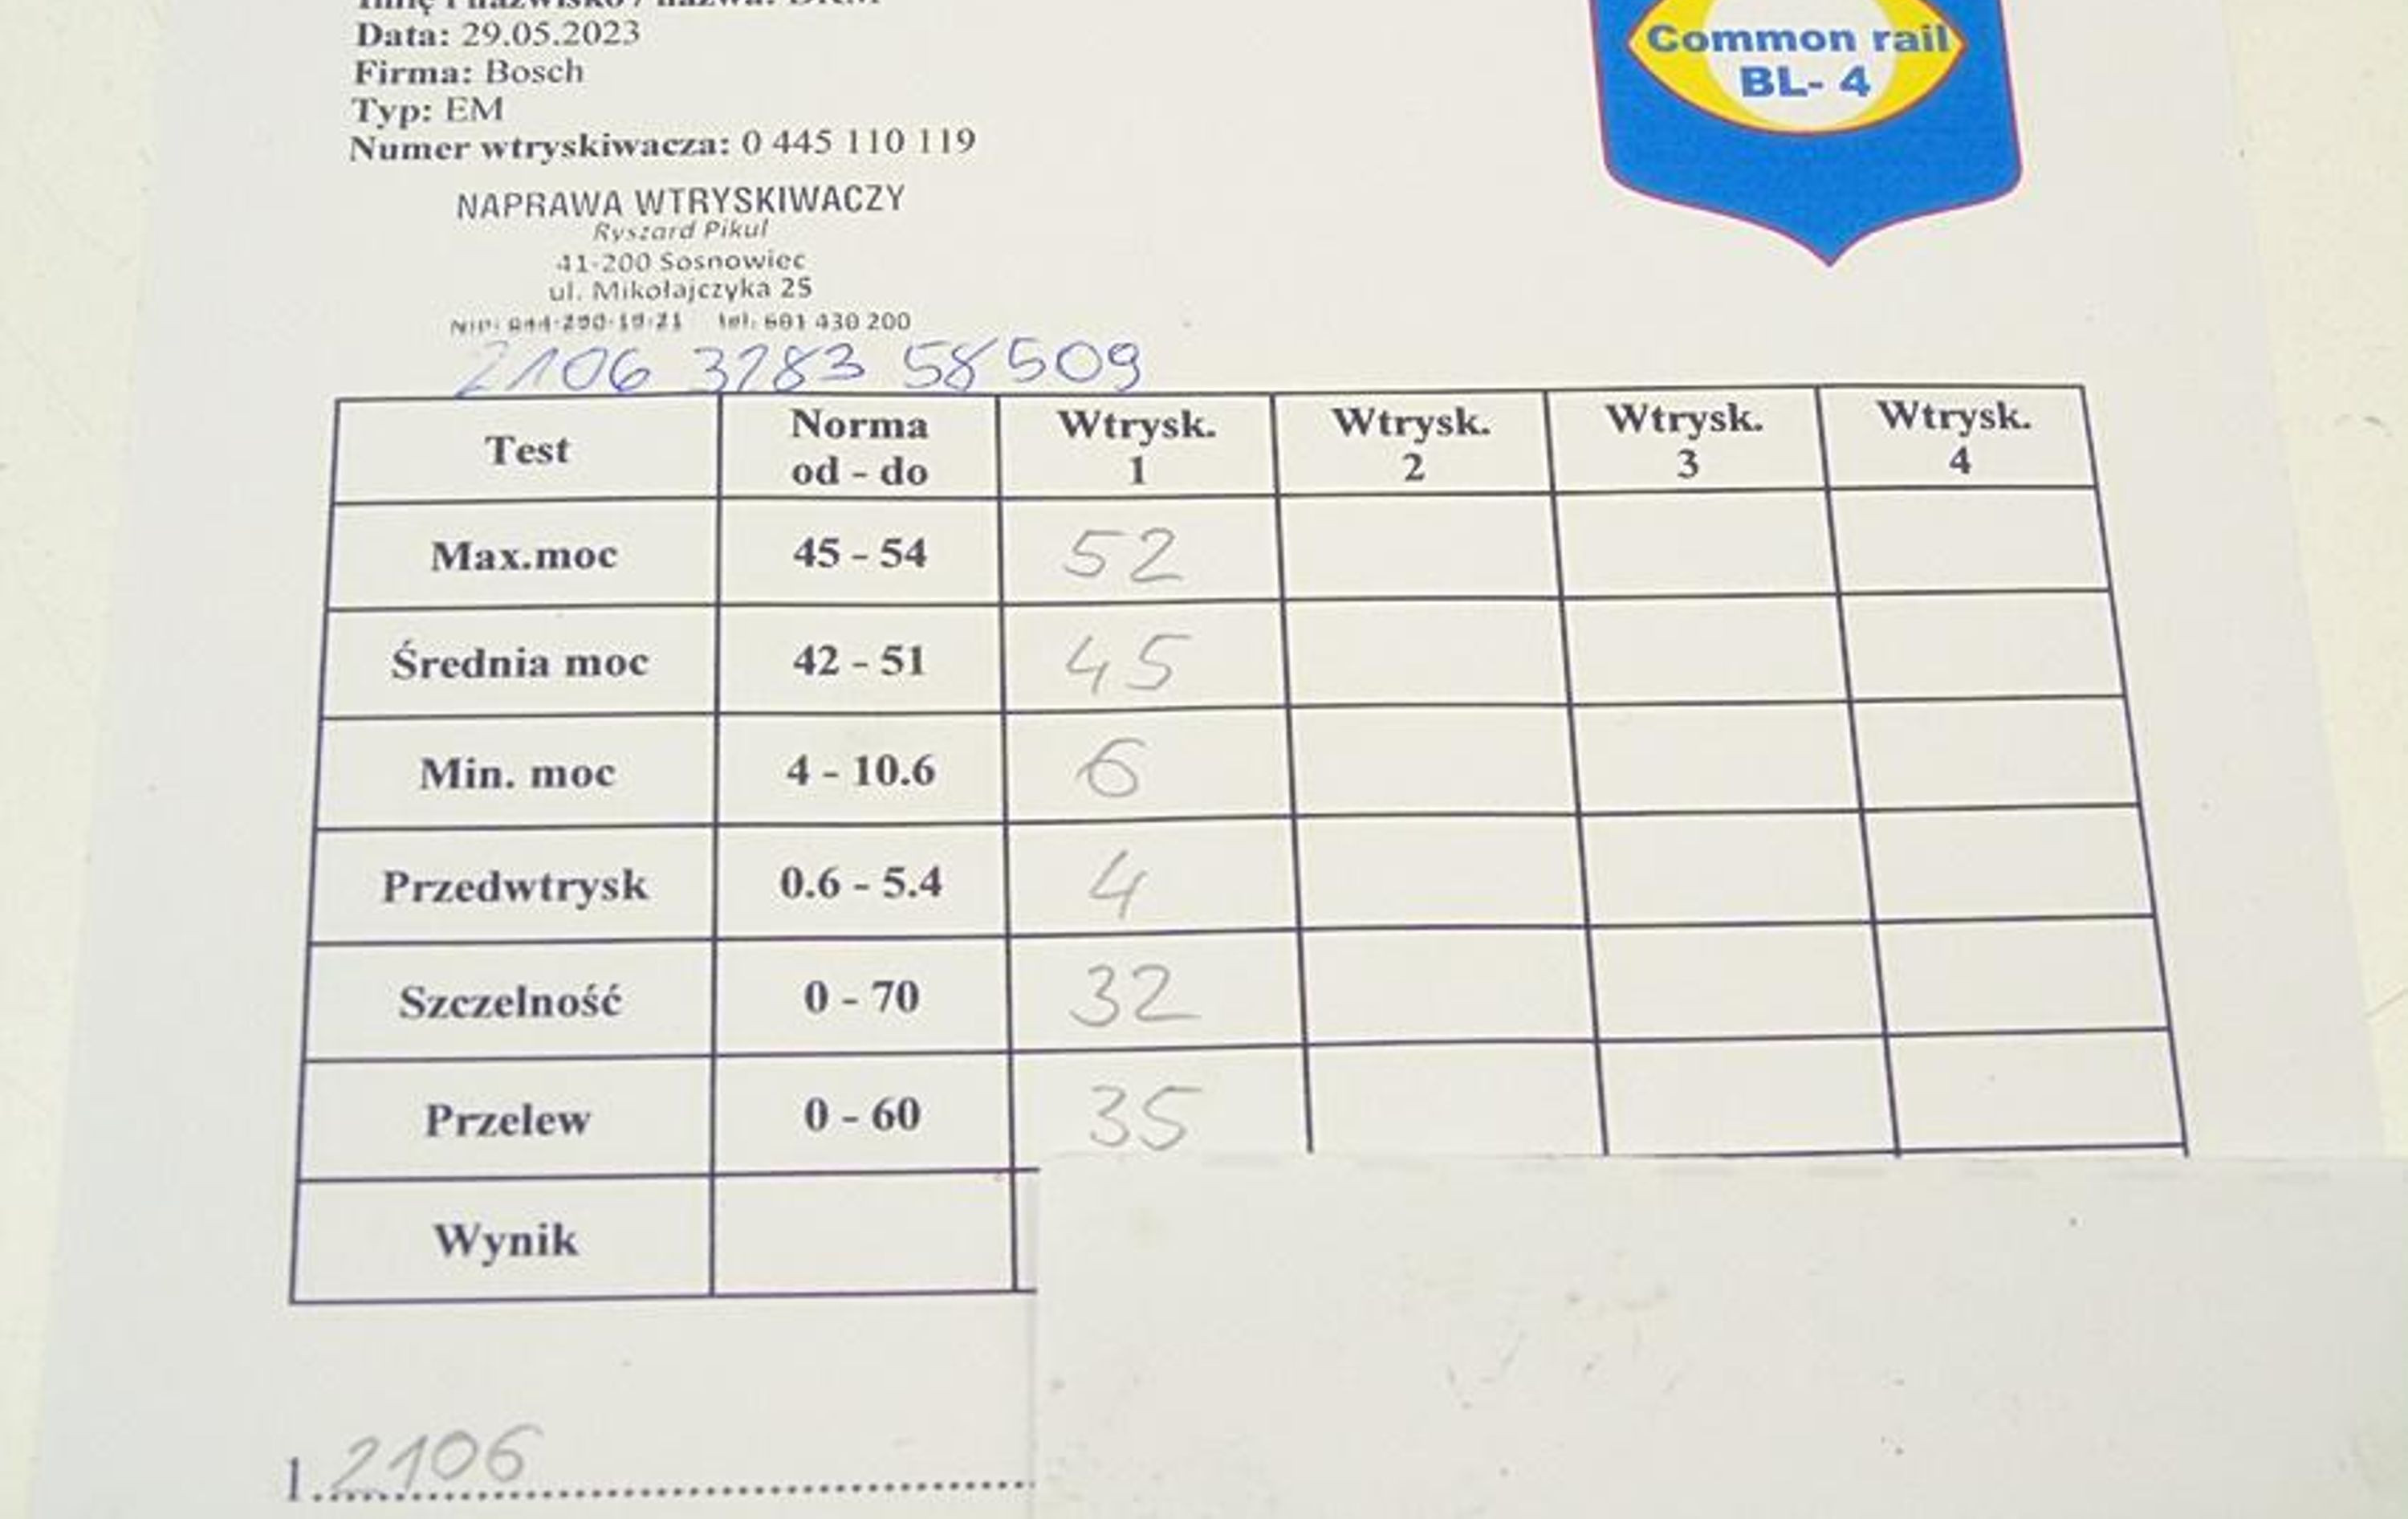 Data: 29.05.2023
Firma: Bosch
Typ: EM
Numer wtryskiwacza: 0 445 110 119
Common rail
BL- 4
NAPRAWA WTRYSKIWACZY
Ryszard Pikul
41-200 Sosnowiec
ul. Mikołajczyka 25
NIP: tel. 601 430 200
2106 3783 58509
Test Norma od - do Wtrysk. 1 Wtrysk. 2 Wtrysk. 3 Wtrysk. 4
Max.moc 45 - 54 52
Średnia moc 42 - 51 45
Min. moc 4 - 10.6 6
Przedwtrysk 0.6 - 5.4 4
Szczelność 0 - 70 32
Przelew 0 - 60 35
Wynik
1. 2106